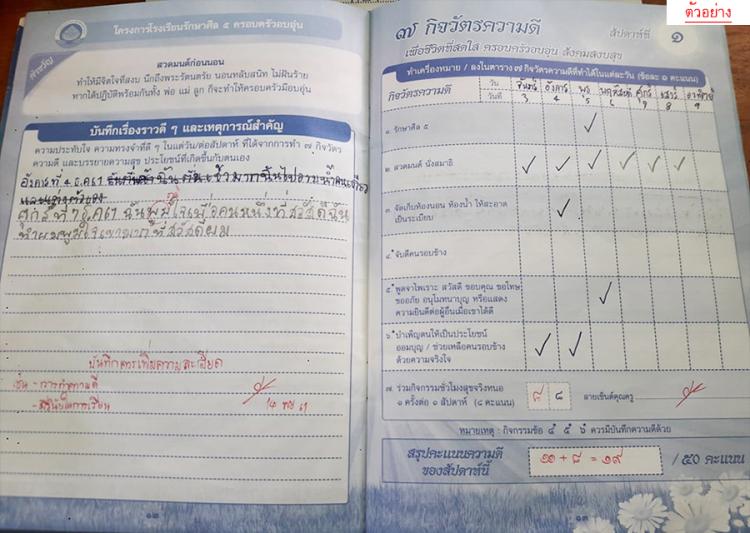 โครงการโรงเรียนรักษาศีล ๕ ครอบครัวอบอุ่น
คำขวัญ
สวดมนต์ก่อนนอน
ทำให้มีจิตใจที่สงบ นึกถึงพระรัตนตรัย นอนหลับสนิท ไม่ฝันร้าย
หากได้ปฏิบัติพร้อมกันทั้ง พ่อ แม่ ลูก ก็จะทำให้ครอบครัวมีอบอุ่น
บันทึกเรื่องราวดี ๆ และเหตุการณ์สำคัญ
ความประทับใจ ความทรงจำที่ดี ๆ ในแต่ละวัน/ต่อสัปดาห์ ที่ได้จากการทำ ๗ กิจวัตร
ความดี และบรรยายความสุข ประโยชน์ที่เกิดขึ้นกับตนเอง
อังคารที่ 4 ธ.ค 61
ศุกร์ที่ 7 ธ.ค 61 ฉันภูมิใจ
บันทึกควรเพิ่มความละเอียด
เช่น - การทำความดี
๑๒
ตัวอย่าง
๗ กิจวัตรความดี
สัปดาห์ที่ ๑
เพื่อชีวิตที่สดใส ครอบครัวอบอุ่น สังคมสงบสุข
ทำเครื่องหมาย / ลงในตาราง ๗ กิจวัตรความดีที่ทำได้ในแต่ละวัน (ข้อละ ๑ คะแนน)
กิจวัตรความดี วัน จันทร์ อังคาร พุธ พฤหัสบดี ศุกร์ เสาร์ อาทิตย์
วันที่ 3 4 5 6 7 8 9
๑. รักษาศีล ๕
๒. สวดมนต์ นั่งสมาธิ
๓. จัดเก็บห้องนอน ห้องน้ำ ให้สะอาด
เป็นระเบียบ
๔. จับดีคนรอบข้าง
๕. พูดจาไพเราะ สวัสดี ขอบคุณ ขอโทษ
ขออภัย อนุโมทนาบุญ หรือแสดง
ความยินดีต่อผู้อื่นเมื่อเขาได้ดี
๖. บำเพ็ญตนให้เป็นประโยชน์
ออมบุญ / ช่วยเหลือคนรอบข้าง
ด้วยความจริงใจ
๗. ร่วมกิจกรรมชั่วโมงสุขจริงหนอ
๑ ครั้งต่อ ๑ สัปดาห์ (๘ คะแนน)
๘ ๘ ลายเซ็นต์คุณครู
หมายเหตุ : กิจกรรมข้อ ๔ ๕ ๖ ควรมีบันทึกความดีด้วย
สรุปคะแนนความดี
ของสัปดาห์นี้
๑๑ + ๘ = ๑๙ / ๕๐ คะแนน
๑๓